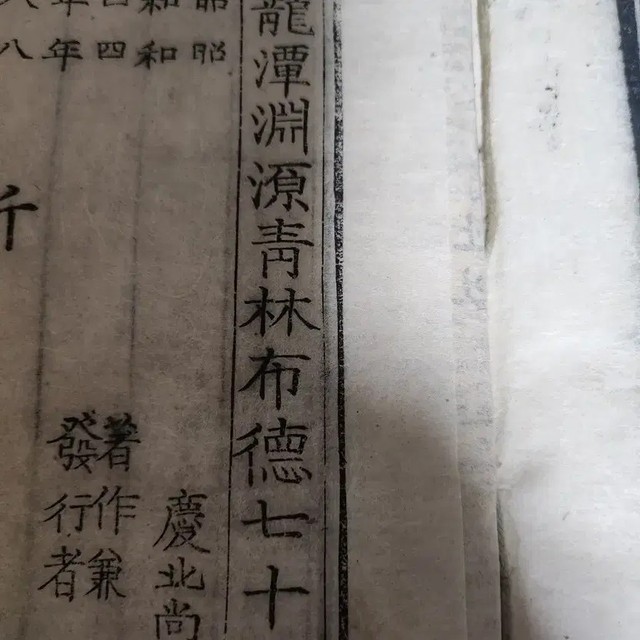 龍潭淵源靑林布德七十
昭和四年
昭和四年八
慶北尚
著作兼
發行者